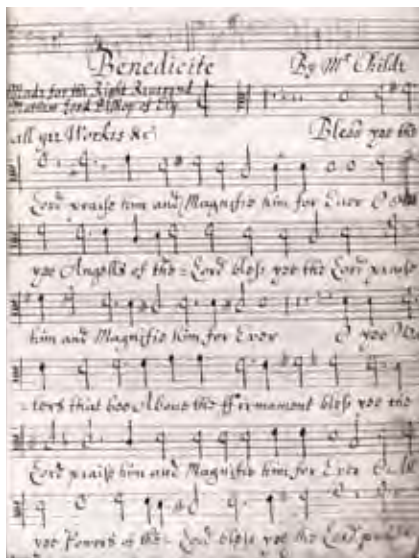 Benedicite By Mr Childe
Made for the Right Reverend
Mathew Lord Bishop of Ely
all yee Workes &c Bless yee the
Lord praise him and Magnifie him for Ever O
yee Angells of the Lord bless yee the Lord praise
him and Magnifie him for Ever O yee Wa
-ters that bee Above the ffirmament bless yee the
Lord praise him and Magnifie him for Ever O All
yee Powers of the Lord bless yee the Lord praise